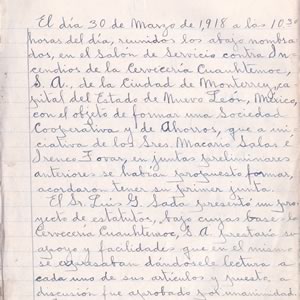 El día 30 de Marzo de 1,918 a las 10 30
horas del día, reunidos los abajo nombra-
dos, en el Salón de Servicio contra In-
cendios de la Cervecería Cuauhtemoc,
S. A., de la Ciudad de Monterrey, ca-
pital del Estado de Nuevo León, México,
con el objeto de formar una Sociedad
Cooperativa y de Ahorros, que a ini-
ciativa de los Sres. Macario Salas e
Ireneo Tovar, en juntas preliminares
anteriores se habían propuesto formar,
acordaron tener su primer junta.
El Sr. Luis G. Sada presentó un pro-
yecto de estatutos, bajo cuyas bases la
Cervecería Cuauhtemoc, S. A. prestaría su
apoyo y facilidades que en el mismo
se expresaban dándosele lectura a
cada uno de sus artículos y puesto a
discusión fue aprobado por unanimidad